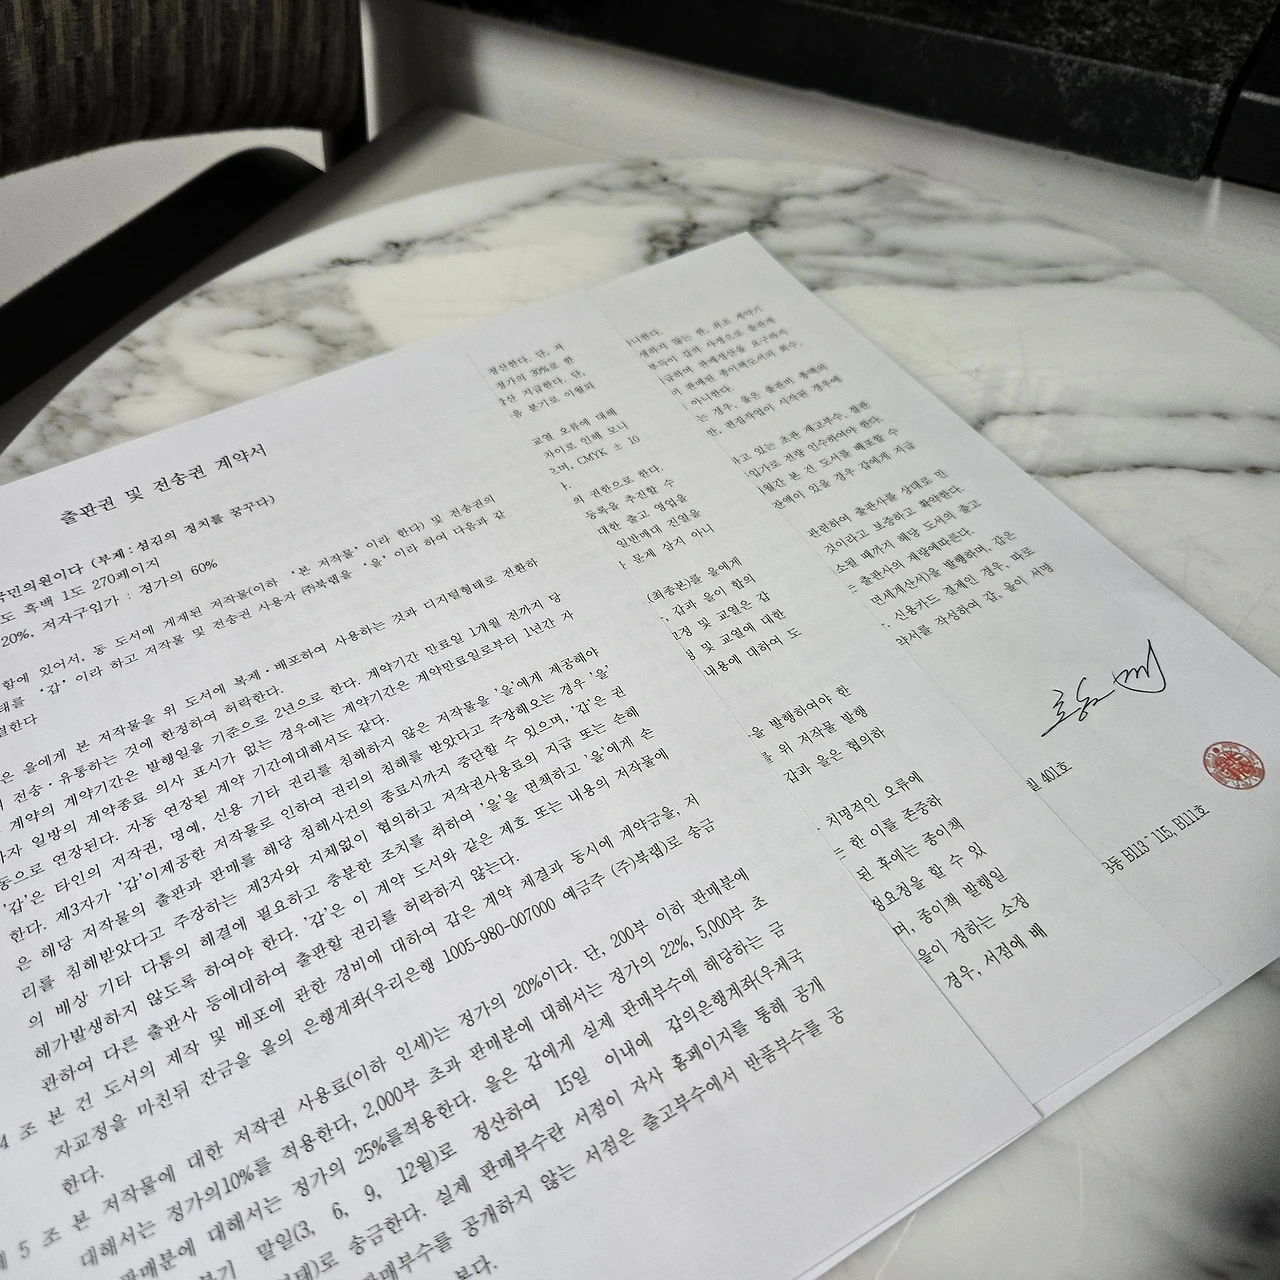 출판권 및 전송권 계약서
국민의원이다 (부제 : 섬김의 정치를 꿈꾸다)
도 흑백 1도 270페이지
20%, 저자구입가 : 정가의 60%
함에 있어서, 동 도서에 게재된 저작물(이하 '본 저작물' 이라 한다) 및 전송권의
태를 '갑' 이라 하고 저작물 및 전송권 사용자 ㈜북랩을 '을' 이라 하여 다음과 같
결한다
은 을에게 본 저작물을 위 도서에 복제·배포하여 사용하는 것과 디지털형태로 전환하
전송·유통하는 것에 한정하여 허락한다.
계약의 계약기간은 발행일을 기준으로 2년으로 한다. 계약기간 만료일 1개월 전까지 당
사자 일방의 계약종료 의사 표시가 없는 경우에는 계약기간은 계약만료일로부터 1년간 자
동으로 연장된다. 자동 연장된 계약 기간에대해서도 같다.
'갑'은 타인의 저작권, 명예, 신용 기타 권리를 침해하지 않은 저작물을 '을'에게 제공해야
한다. 제3자가 '갑'이제공한 저작물로 인하여 권리의 침해를 받았다고 주장해오는 경우 '을'
은 해당 저작물의 출판과 판매를 해당 침해사건의 종료시까지 중단할 수 있으며, '갑'은 권
리를 침해받았다고 주장하는 제3자와 지체없이 협의하고 저작권사용료의 지급 또는 손해
의 배상 기타 다툼의 해결에 필요하고 충분한 조치를 취하여 '을'을 면책하고 '을'에게 손
해가발생하지 않도록 하여야 한다. '갑'은 이 계약 도서와 같은 제호 또는 내용의 저작물에
관하여 다른 출판사 등에대하여 출판할 권리를 허락하지 않는다.
4 조 본 건 도서의 제작 및 배포에 관한 경비에 대하여 갑은 계약 체결과 동시에 계약금을, 저
자교정을 마친뒤 잔금을 을의 은행계좌(우리은행 1005-980-007000 예금주 (주)북랩)로 송금
한다.
제 5 조 본 저작물에 대한 저작권 사용료(이하 인세)는 정가의 20%이다. 단, 200부 이하 판매분에
대해서는 정가의10%를 적용한다, 2,000부 초과 판매분에 대해서는 정가의 22%, 5,000부 초
판매분에 대해서는 정가의 25%를적용한다. 을은 갑에게 실제 판매부수에 해당하는 금
분기 말일(3, 6, 9, 12월)로 정산하여 15일 이내에 갑의은행계좌(우체국
로 송금한다. 실제 판매부수란 서점이 자사 홈페이지를 통해 공개
판매부수를 공개하지 않는 서점은 출고부수에서 반품부수를 공
본다.
정산한다. 단, 저
정가의 30%로 한
산 지급한다. 단,
음 분기로 이월되
교열 오류에 대해
차이로 인해 모니
으며, CMYK ± 10
의 권한으로 한다.
등록을 추진할 수
대한 출고 영업을
일반매대 진열을
문제 삼지 아니
(최종본)를 을에게
갑과 을이 합의
교정 및 교열은 갑
정 및 교열에 대한
내용에 대하여 도
을 발행하여야 한
를 위 저작물 발행
갑과 을은 협의하
치명적인 오류에
는 한 이를 존중하
된 후에는 종이책
정요청을 할 수 있
며, 종이책 발행일
을이 정하는 소정
경우, 서점에 배
니한다.
생하지 않는 한, 최초 계약기
부득이 갑의 사정으로 출판계
급하며 판매정산을 요구하지
미 판매된 종이책도서의 회수,
아니한다.
는 경우, 을은 출판비 총액의
만, 편집작업이 시작된 경우에
하고 있는 초판 재고부수, 절판
입가로 전량 인수하여야 한다.
월간 본 건 도서를 배포할 수
잔액이 있을 경우 갑에게 지급
관련하여 출판사를 상대로 민
것이라고 보증하고 확약한다.
소될 때까지 해당 도서의 출고
는 출판사의 재량에따른다.
면세계산서)을 발행하며, 갑은
신용카드 결제인 경우, 따로
약서를 작성하여 갑, 을이 서명
401호
3동 B113~115, B111호